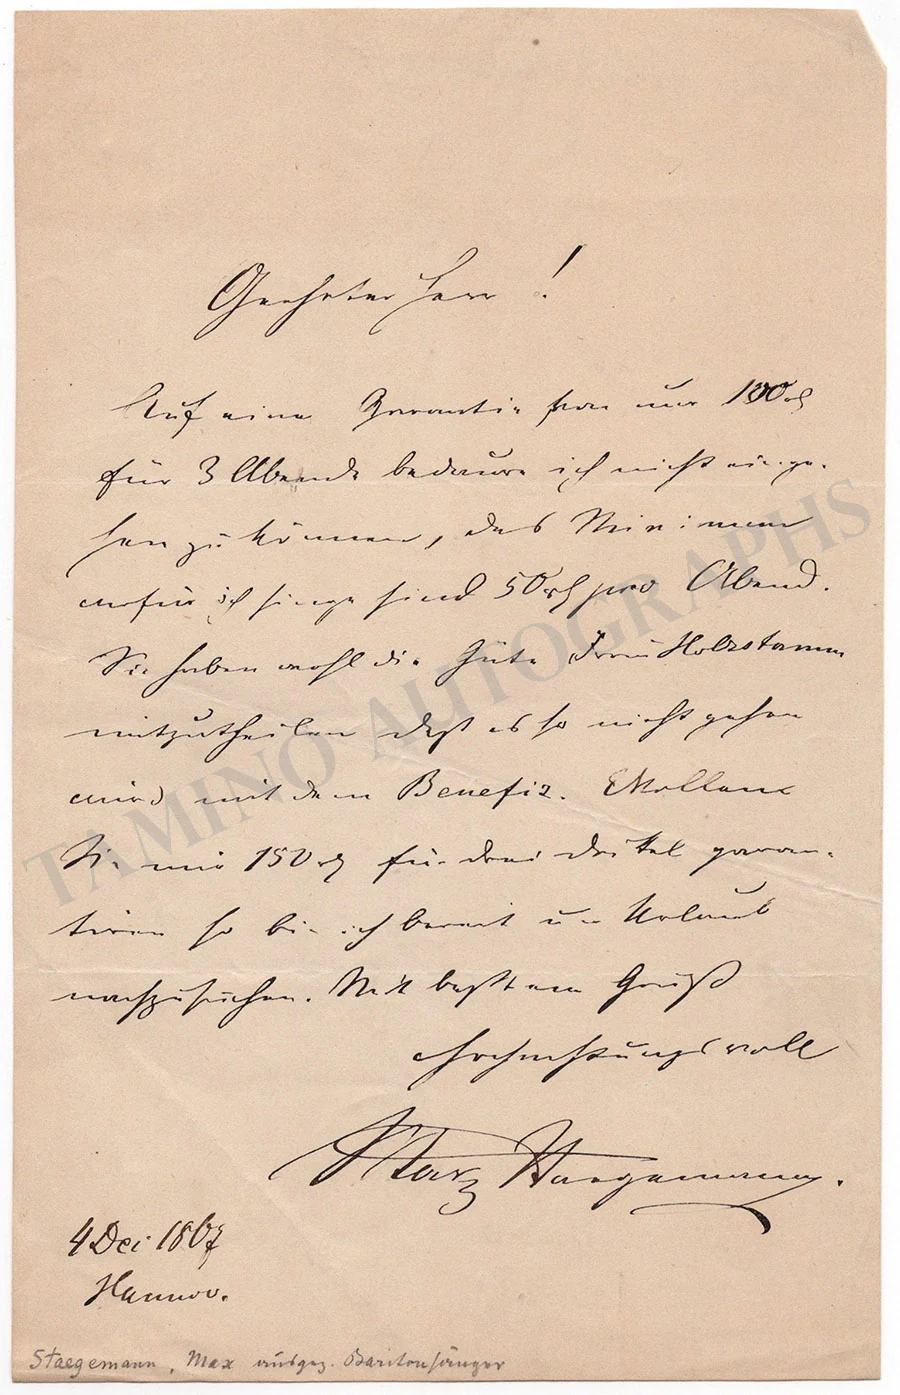 Geehrter Herr!
Auf eine Garantie von nur 100 rh
für 3 Abende bedaure ich nicht einge-
hen zu können, das Minimum
wofür ich singe sind 50 rh pro Abend.
Sie haben wohl die Güte Frau Holzstamm
mitzutheilen daß es so nicht gehen
wird mit dem Benefiz. Wollen
Sie mir 150 rh für drei garan-
tiren so bin ich bereit um Urlaub
nachzusuchen. Mit bestem Gruß
Hochachtungsvoll
Max Staegemann.
4 Dei 1867
Hannov.
Staegemann, Max ausgez. Baritonsänger
TAMINO AUTOGRAPHS